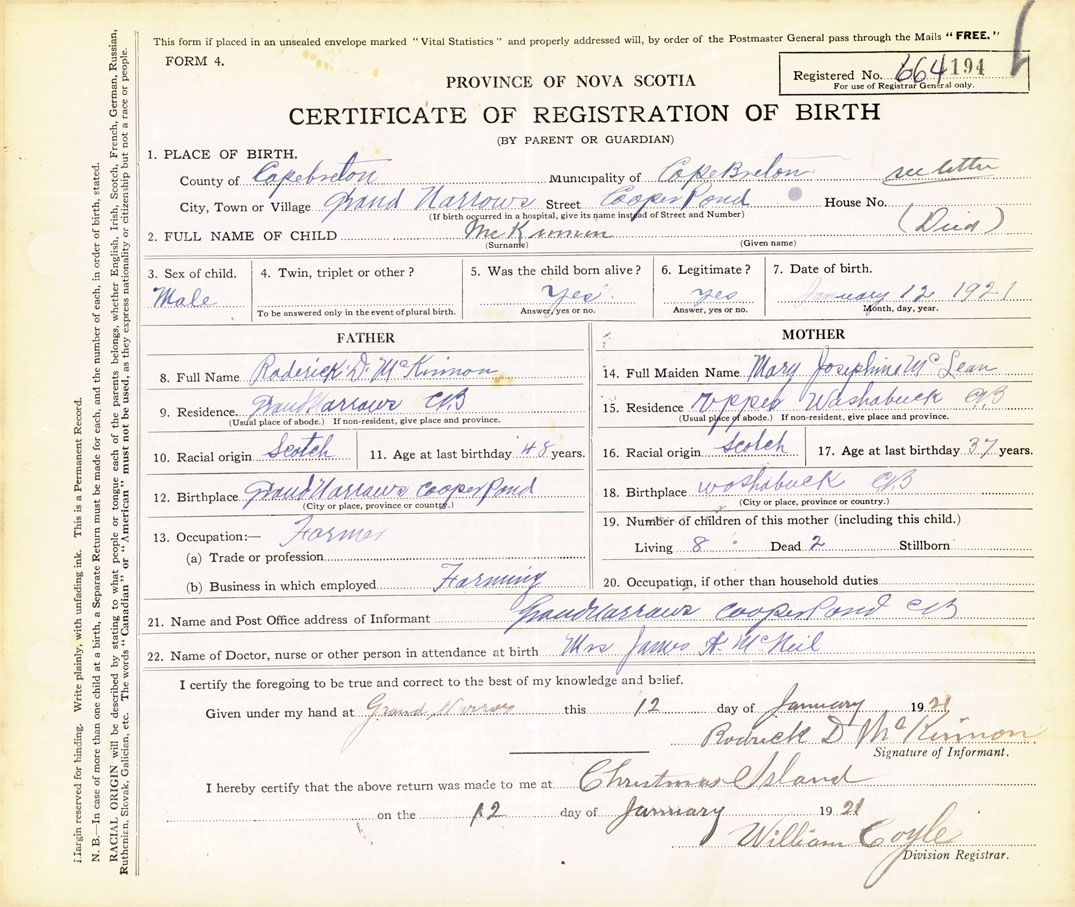 This form if placed in an unsealed envelope marked "Vital Statistics" and properly addressed will, by order of the Postmaster General pass through the Mails "FREE."
FORM 4.
Registered No. 664 194
For use of Registrar General only.
PROVINCE OF NOVA SCOTIA
CERTIFICATE OF REGISTRATION OF BIRTH
(BY PARENT OR GUARDIAN)
1. PLACE OF BIRTH.
County of Capebreton Municipality of Cape Breton see letter
City, Town or Village Grand Narrows Street Cooper Pond House No.
(If birth occurred in a hospital, give its name instead of Street and Number)
2. FULL NAME OF CHILD McKinnon (Died)
(Surname) (Given name)
3. Sex of child. 4. Twin, triplet or other? 5. Was the child born alive? 6. Legitimate? 7. Date of birth.
Male Yes yes January 12 1921
To be answered only in the event of plural birth. Answer, yes or no. Answer, yes or no. Month, day, year.
FATHER
8. Full Name Roderick D. McKinnon
9. Residence. Grand Narrows CB
(Usual place of abode.) If non-resident, give place and province.
10. Racial origin Scotch 11. Age at last birthday 48 years.
12. Birthplace Grand Narrows Cooper Pond
(City or place, province or country.)
13. Occupation:— Farmer
(a) Trade or profession
(b) Business in which employed Farming
MOTHER
14. Full Maiden Name Mary Josephine McLean
15. Residence Upper Washabuck CB
(Usual place of abode.) If non-resident, give place and province.
16. Racial origin Scotch 17. Age at last birthday 37 years.
18. Birthplace Washabuck CB
(City or place, province or country.)
19. Number of children of this mother (including this child.)
Living 8 Dead 2 Stillborn
20. Occupation, if other than household duties
21. Name and Post Office address of Informant Grand Narrows Cooper Pond CB
22. Name of Doctor, nurse or other person in attendance at birth Mrs James A. McNeil
I certify the foregoing to be true and correct to the best of my knowledge and belief.
Given under my hand at Grand Narrows this 12 day of January 1921
Rodrick D McKinnon
Signature of Informant.
I hereby certify that the above return was made to me at Christmas Island
on the 12 day of January 1921
William Coyle
Division Registrar.
Margin reserved for binding. Write plainly, with unfading ink. This is a Permanent Record.
N. B.—In case of more than one child at a birth, a Separate Return must be made for each, and the number of each, in order of birth, stated.
RACIAL ORIGIN will be described by stating to what people or tongue each of the parents belongs, whether English, Irish, Scotch, French, German, Russian,
Ruthenian, Slovak, Galician, etc. The words "Canadian" or "American" must not be used, as they express nationality or citizenship but not a race or people.